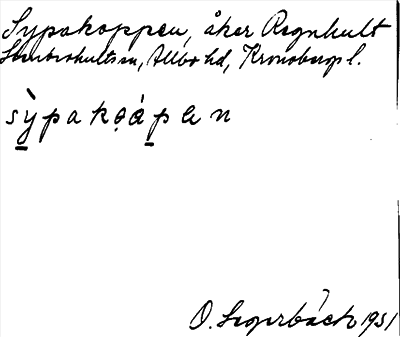 Sypakoppen, åker Regnhult
Stenbrohults sn, Allbo hd, Kronobergs l.
sỳpakǫápen
O. Segerbäck 1931